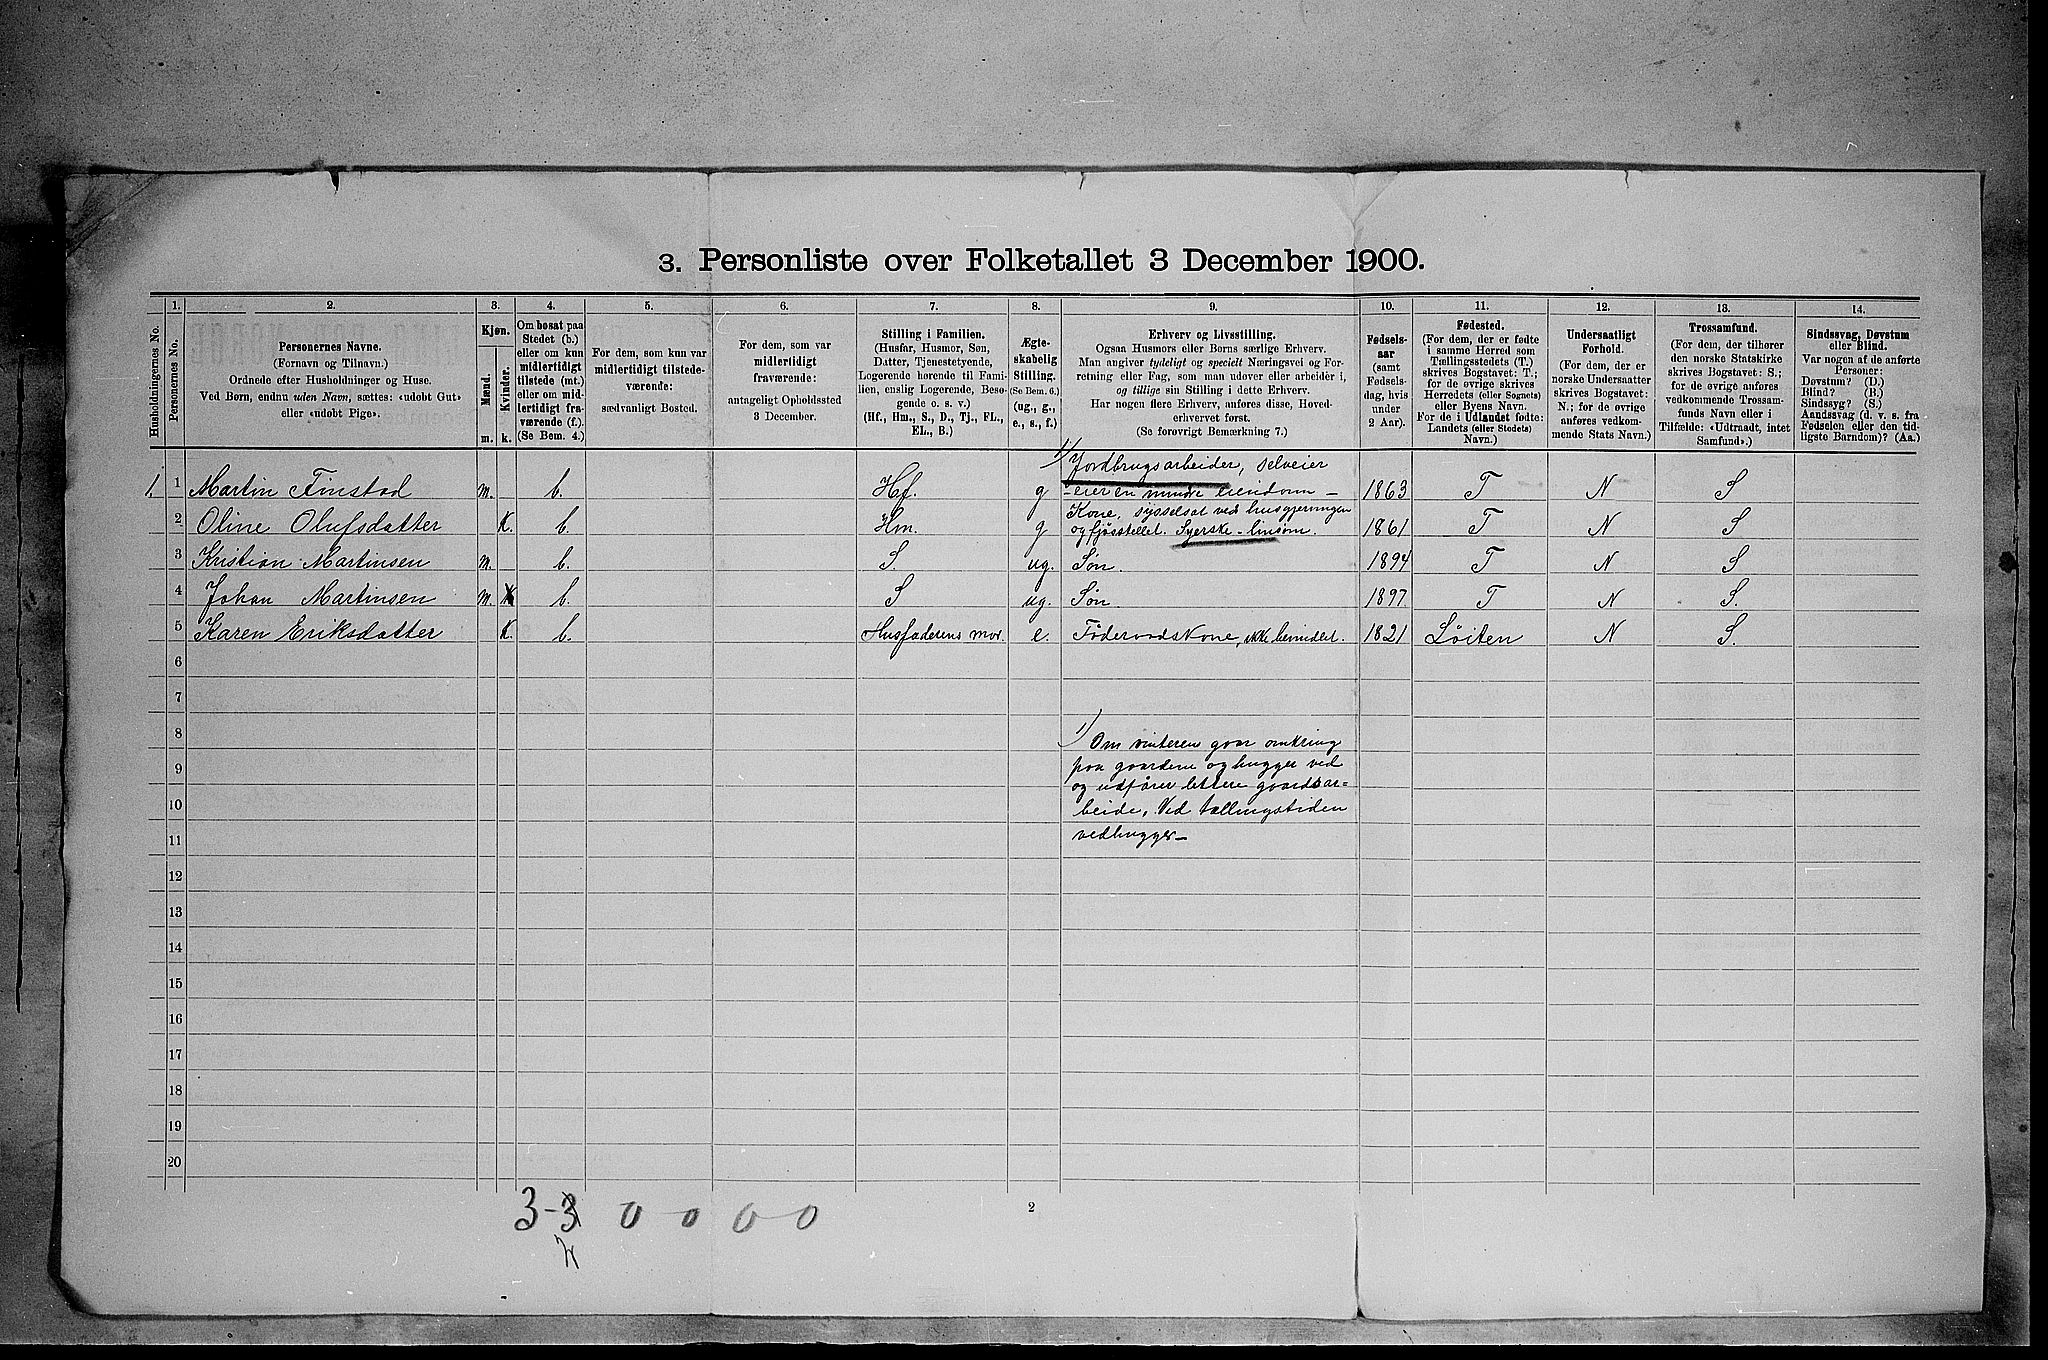 3. Personliste over Folketallet 3 December 1900.
Husholdningernes No.
1.
Personernes No.
2.
Personernes Navne.
(Fornavn og Tilnavn.)
Ordnede efter Husholdninger og Huse.
Ved Børn, endnu uden Navn, sættes: «udøbt Gut»
eller «udøbt Pige».
3.
Kjøn.
Mænd.
Kvinder.
m.
k.
4.
Om bosat paa
Stedet (b.)
eller om kun
midlertidigt
tilstede (mt.)
eller om mid-
lertidigt fra-
værende (f.).
(Se Bem. 4.)
5.
For dem, som kun var
midlertidigt tilstede-
værende:
sædvanligt Bosted.
6.
For dem, som var
midlertidigt
fraværende:
antageligt Opholdssted
3 December.
7.
Stilling i Familien.
(Husfar, Husmor, Søn,
Datter, Tjenestetyende,
Logerende hørende til Fami-
lien, enslig Logerende, Besø-
gende o. s. v.)
(Hf., Hm., S., D., Tj., FL.,
EL., B.)
8.
Ægte-
skabelig
Stilling.
(Se Bem. 6.)
(ug., g.,
e., s., f.)
9.
Erhverv og Livsstilling.
Ogsaa Husmors eller Børns særlige Erhverv.
Man angiver tydeligt og specielt Næringsvei og For-
retning eller Fag, som man udøver eller arbeider i,
og tillige sin Stilling i dette Erhverv.
Har nogen flere Erhverv, anføres disse, Hoved-
erhvervet først.
(Se forøvrigt Bemærkning 7.)
10.
Fødsels-
aar
(samt
Fødsels-
dag, hvis
under
2 Aar).
11.
Fødested.
(For dem, der er født
i samme Herred som
Tællingsstedets (T.)
skrives Bogstavet: T.;
for de øvrige skrives
Herredets (eller Sognets)
eller Byens Navn.
For de i Udlandet fødte:
Landets (eller Stedets)
Navn.)
12.
Undersaatligt
Forhold.
(For dem, der er
norske Undersaatter
skrives Bogstavet:
N.; for de øvrige
anføres vedkom-
mende Stats Navn.)
13.
Trossamfund.
(For dem, der tilhører
den norske Statskirke
skrives Bogstavet: S.;
for de øvrige anføres
vedkommende Trossam-
funds Navn eller i
Tilfælde: «Udtraadt, intet
Samfund».)
14.
Sindssvag, Døvstum
eller Blind.
Var nogen af de anførte
Personer:
Døvstum? (D.)
Blind? (B.)
Sindssyg? (S.)
Aandssvag (d. v. s. fra
Fødselen eller den tid-
ligste Barndom)? (Aa.)
1. 1 Martin Finstad m. b. Hf. g 1) Jordbrugsarbeider, selveier
-eier en mindre eiendom - 1863 T N S
2 Oline Olufsdatter K. b. Hm. g Kone, sysselsat ved husgjerningen
og fjøsstellet. Syerske - linsøm. 1861 T N S
3 Kristian Martinsen m. b. S. ug. Søn. 1894 T N S
4 Johan Martinsen m. b. S ug. Søn. 1897 T N S.
5 Karen Eriksdatter K. b. Husfaderens mor. e. Føderaadskone, ikke bemidlet. 1821 Löiten N S.
6
7
8
1) Om vinteren gaar omkring
9
paa gaardene og hugger ved
og udfører lettere gaardsar=
10
beide. Ved tællingstiden
11
vedhugger-
12
13
14
15
16
17
18
19
20
3-3 0 0 0 0
2
2